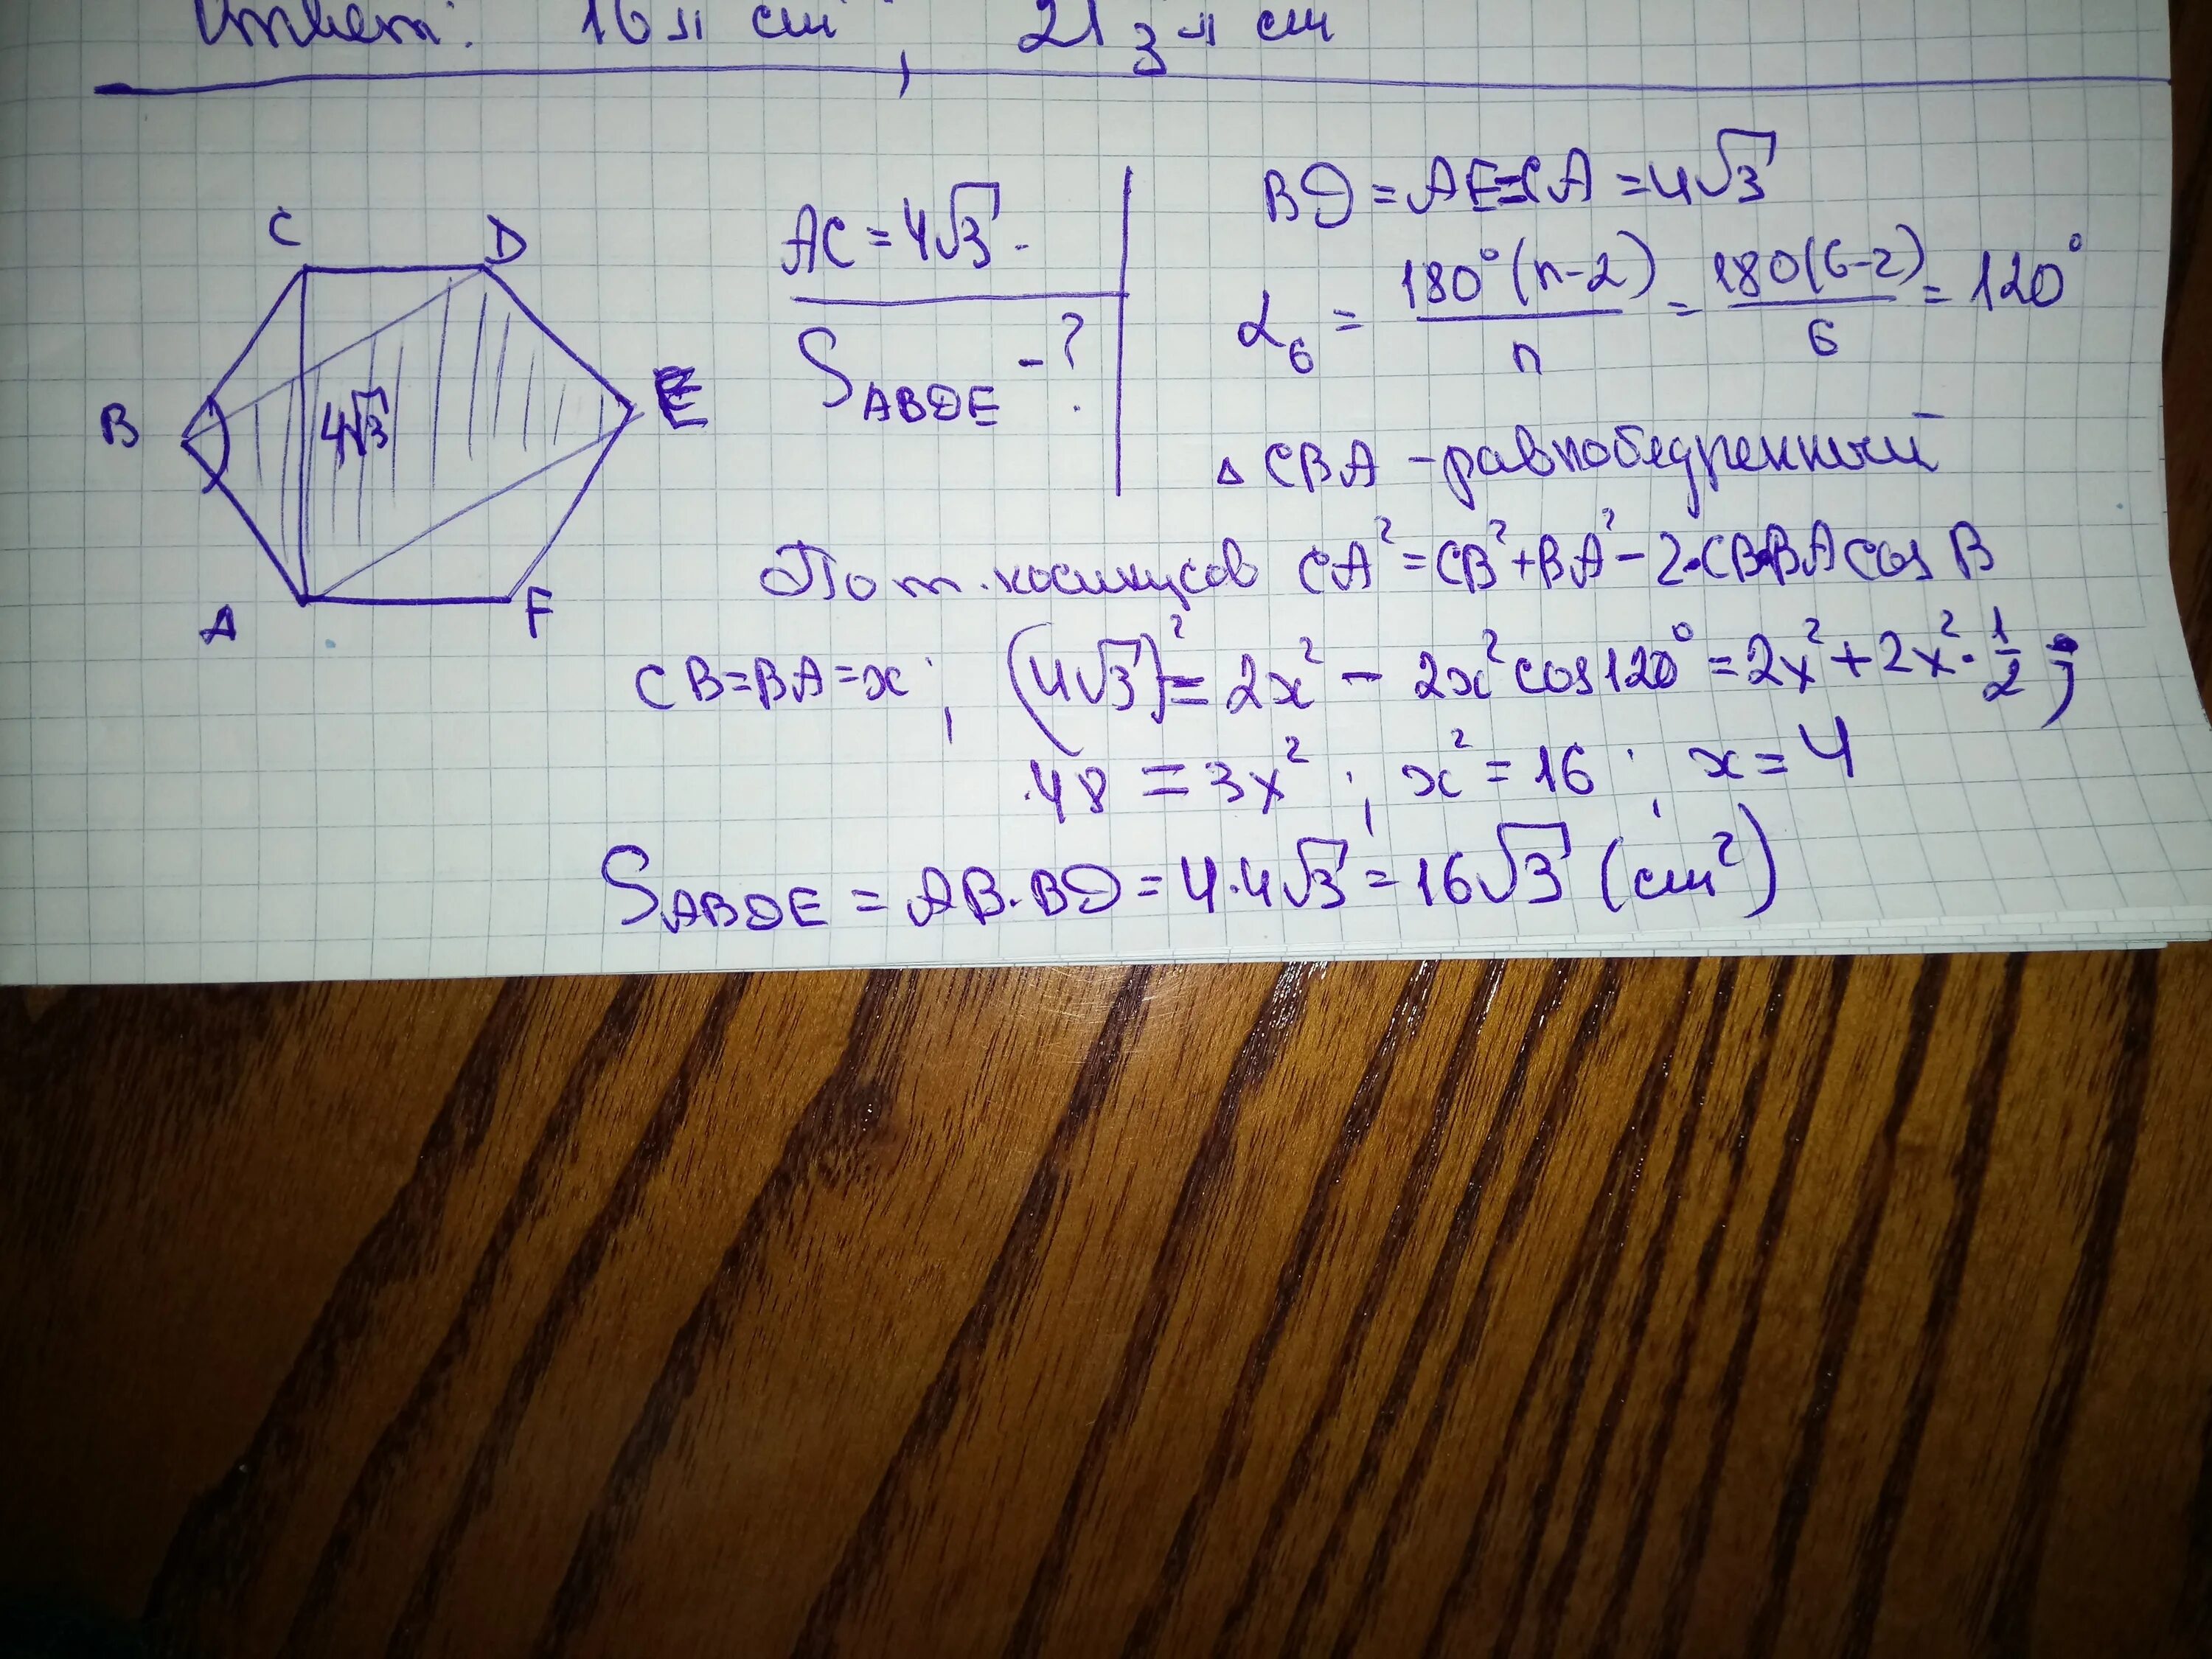 Ответ: 16π см, 21 3 π см
C D
B 4√3 E
A F
AC = 4√3.
S ABDE - ?
BD = AE = CA = 4√3
α₆ = 180°(n-2)/n = 180(6-2)/6 = 120°
△ CBA - равнобедренный
По т. косинусов CA² = CB² + BA² - 2·CB·BA cos B
CB = BA = x; (4√3)² = 2x² - 2x² cos 120° = 2x² + 2x²·1/2;
48 = 3x²; x² = 16; x = 4
S ABDE = AB·BD = 4·4√3 = 16√3 (см²)